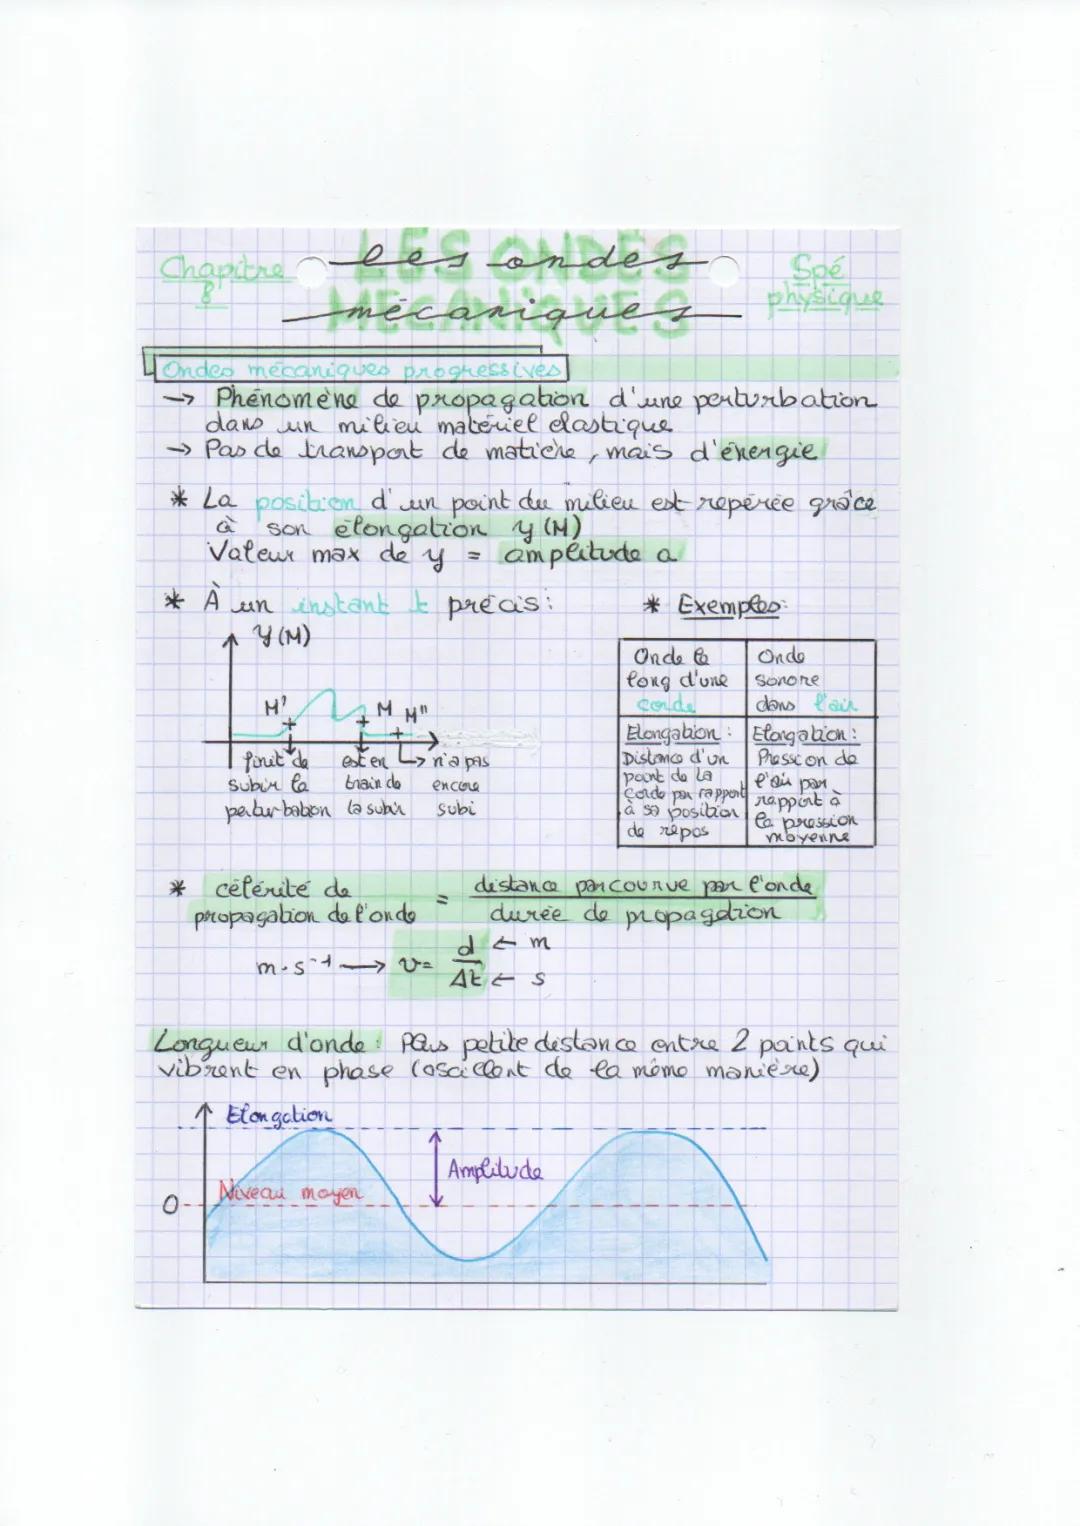 Chapitre 8
LES ONDES MÉCANIQUES
les ondes mécaniques
Spé physique
Ondes mécaniques progressives
→ Phénomène de propagation d'une perturbation
dans un milieu matériel élastique
→ Pas de transport de matière, mais d'énergie
* La position d'un point du milieu est repérée grâce
à son élongation y (M)
Valeur max de y = amplitude a
* À un instant t précis :
y (M)
M' M M"
finit de subir la perturbabion
est en train de la subir
↳ n'a pas encore subi
* Exemples :
Onde le long d'une corde
Onde sonore dans l'air
Elongation :
Distance d'un
point de la
corde par rapport
à sa position
de repos
Elongation :
Pression de
l'air par
rapport à
la pression
moyenne
* célérité de propagation de l'onde = distance parcourue par l'onde
durée de propagation
m.s⁻¹ → v = d ← m
Δt ← s
Longueur d'onde : Plus petite distance entre 2 points qui
vibrent en phase (oscillent de la même manière)
Elongation
Amplitude
Niveau moyen
0